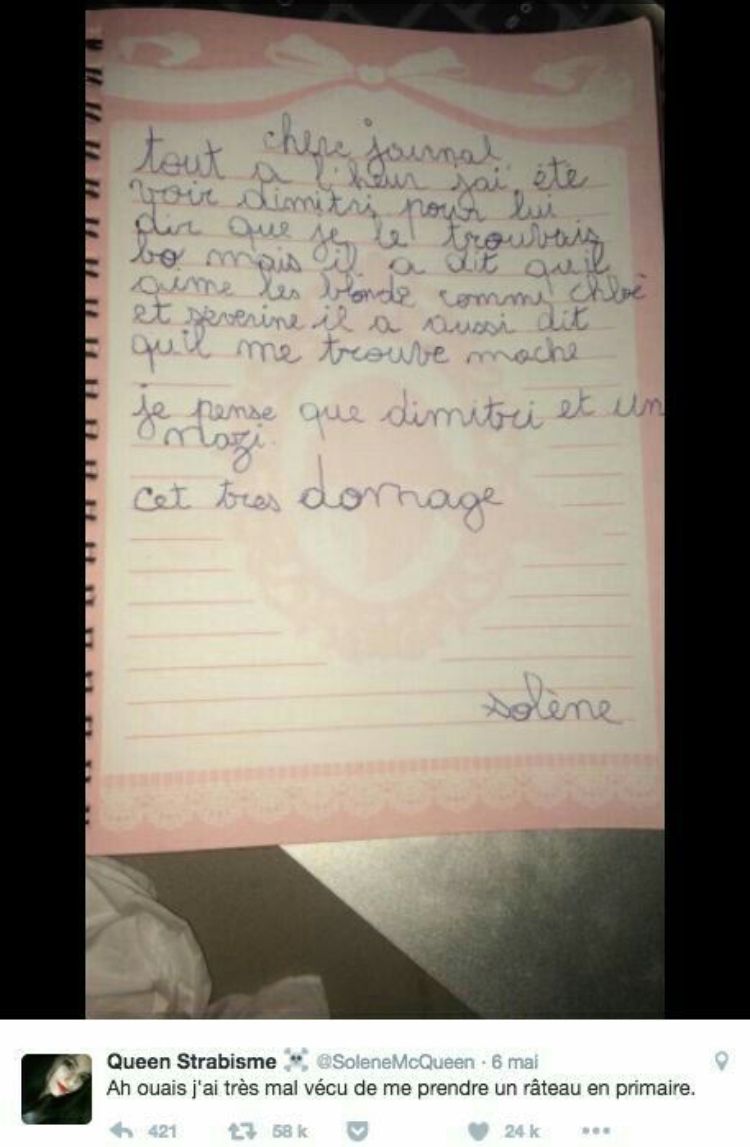 chere journal
tout a l'heur jai été
voir dimitri pour lui
dir que je le trouvais
bo mais il a dit qu'il
aime les blonde comme chloé
et severine il a aussi dit
qu'il me trouve moche
je pense que dimitri et un
nazi.
cet tres domage
solène
Queen Strabisme ☠️ @SoleneMcQueen · 6 mai
Ah ouais j'ai très mal vécu de me prendre un râteau en primaire.
421 58 k 24 k